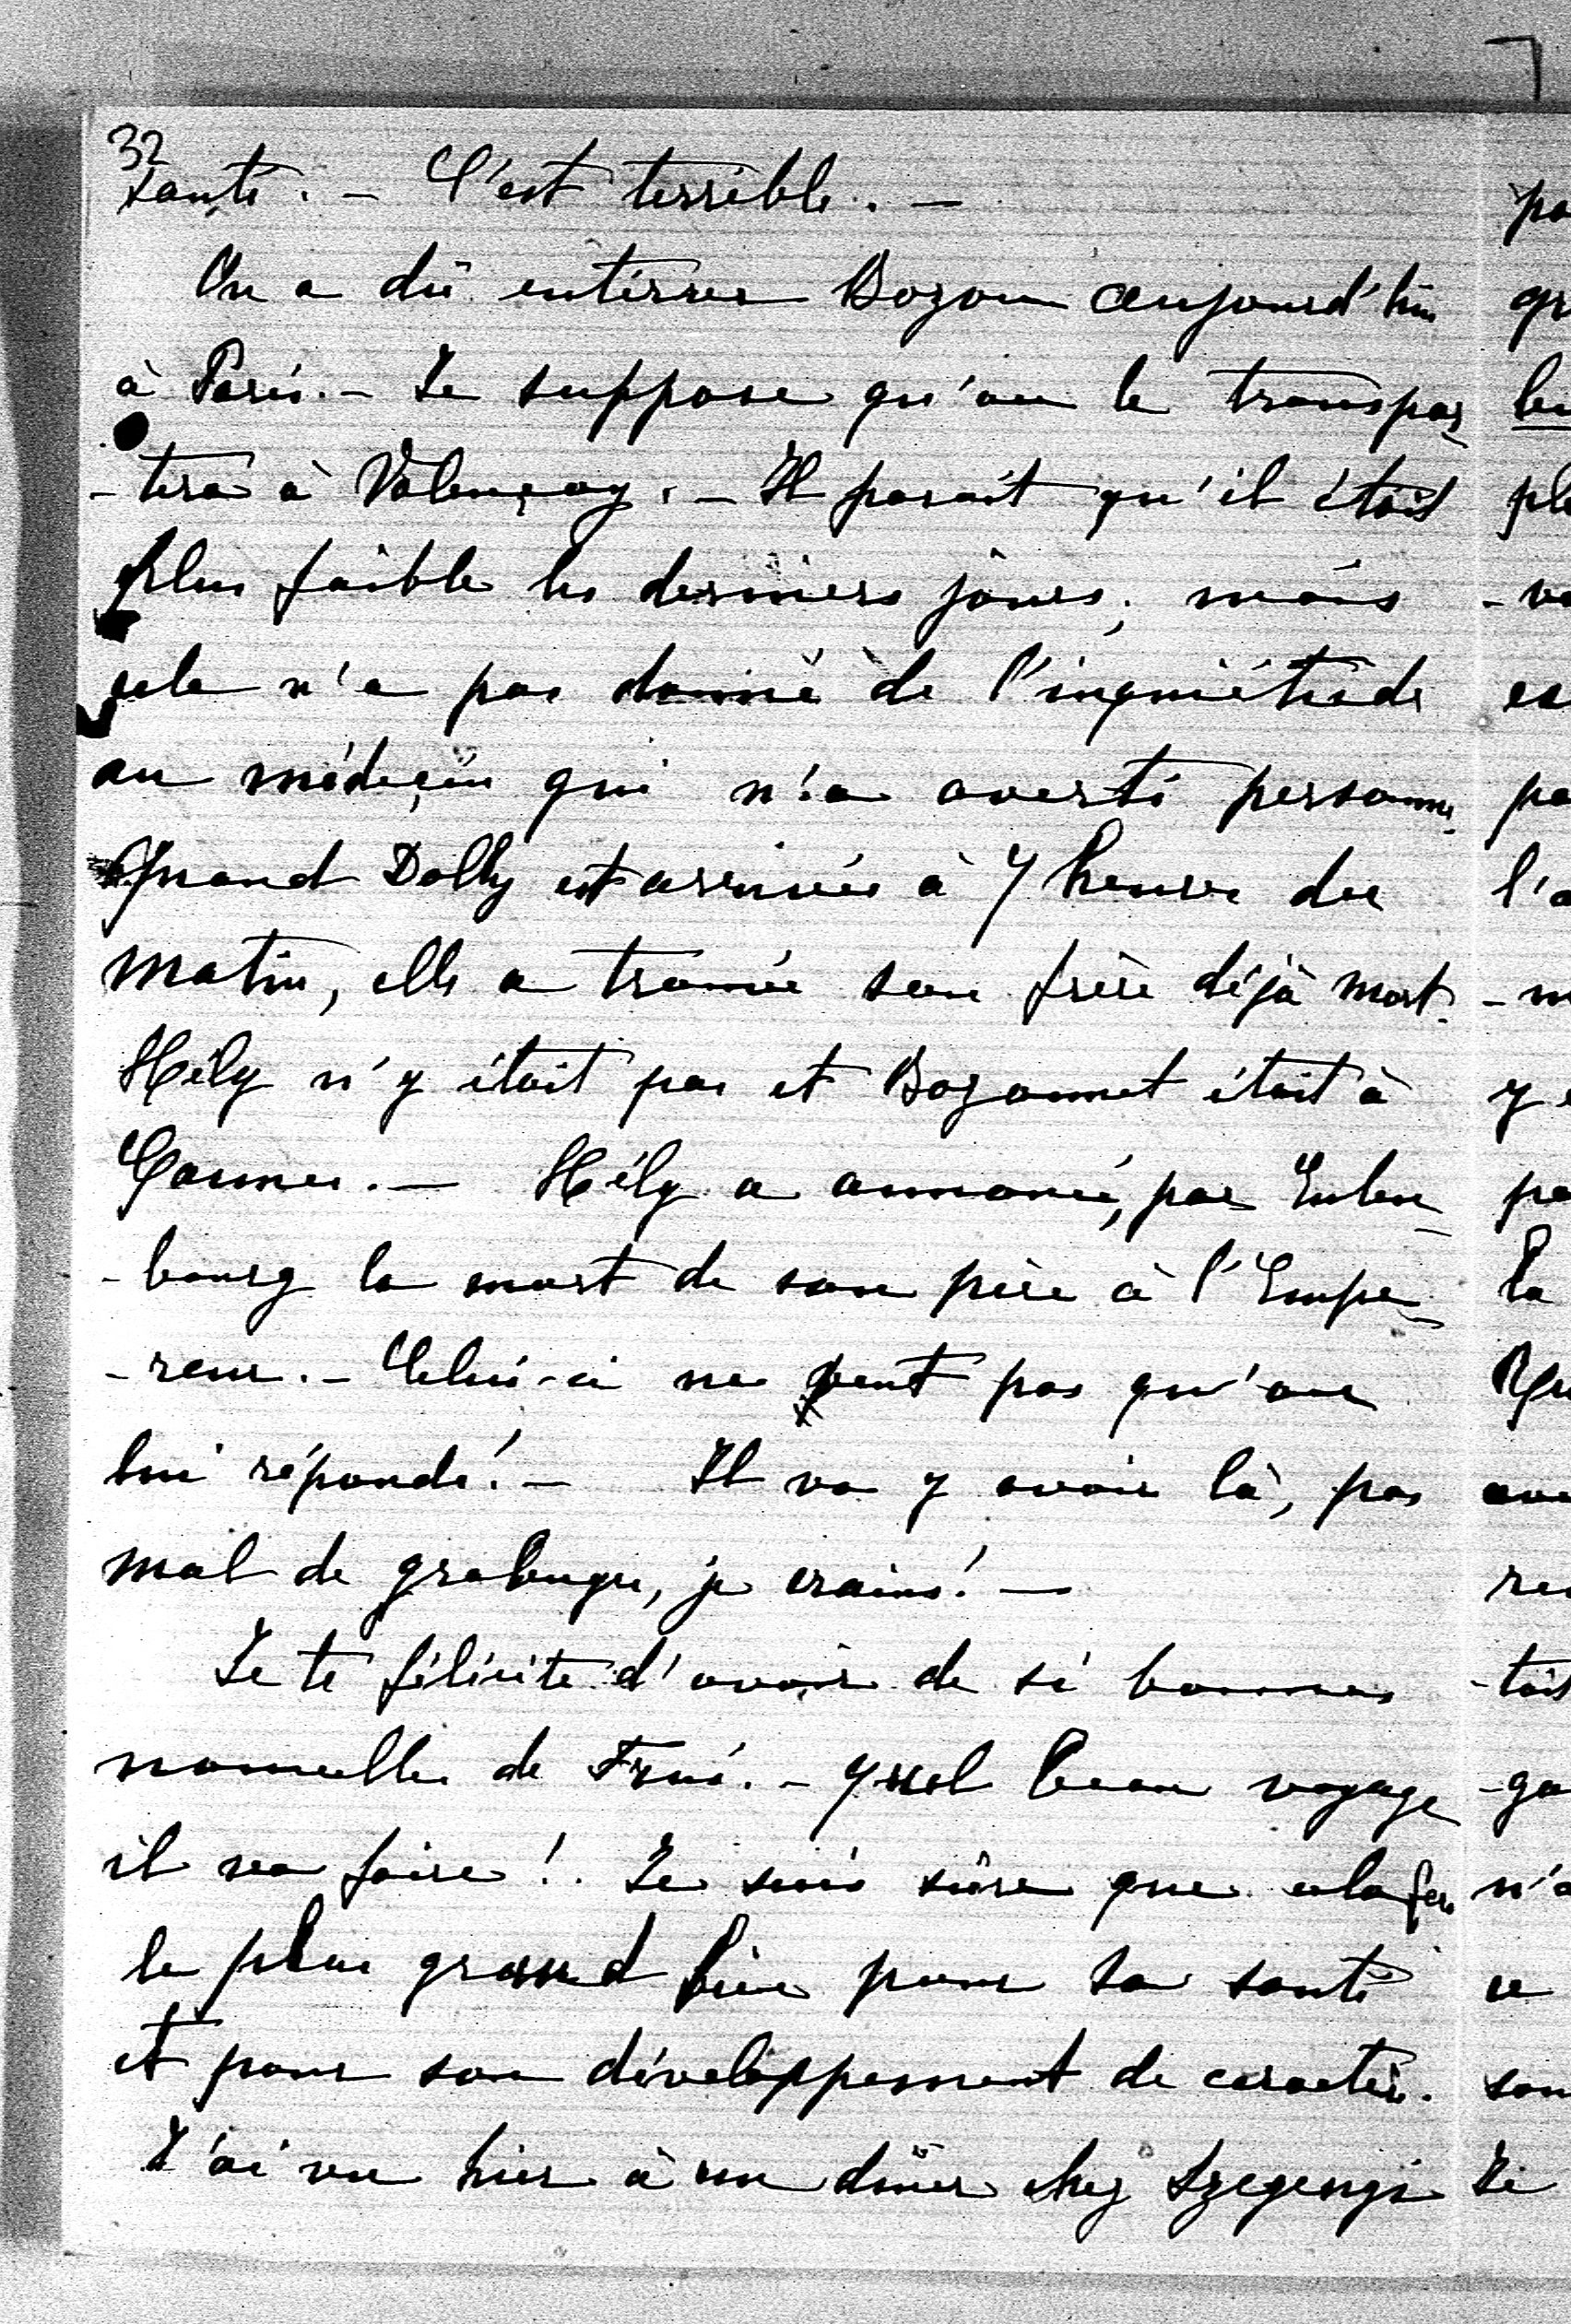 32
santé. – C'est terrible. –
On a dû enterrer Bozon aujourd'hui
à Paris. – Je suppose qu'on le transpor-
-tera à Valençay. – Il parait qu'il était
plus faible les derniers jours, mais
cela n'a pas donné de l'inquiétude
au médecin qui n'a averti personne.
Quand Dolly est arrivée à 7 heures du
matin, elle a trouvé son frère déjà mort.
Hély n'y était pas et Bozonnet était à
Cannes. – Hély a annoncé, par Eulen-
-bourg la mort de son père à l'Empe-
-reur. – Celui-ci ne veut pas qu'on
lui réponde! – Il va y avoir là, pas
mal de grabuge, je crains! –
Je te félicite d'avoir de si bonnes
nouvelles de . – quel beau voyage
il va faire!. Je suis sûre que cela fera
le plus grand bien pour sa santé
et pour son développement de caractère.
J'ai vu hier à un dîner chez Szegenyi